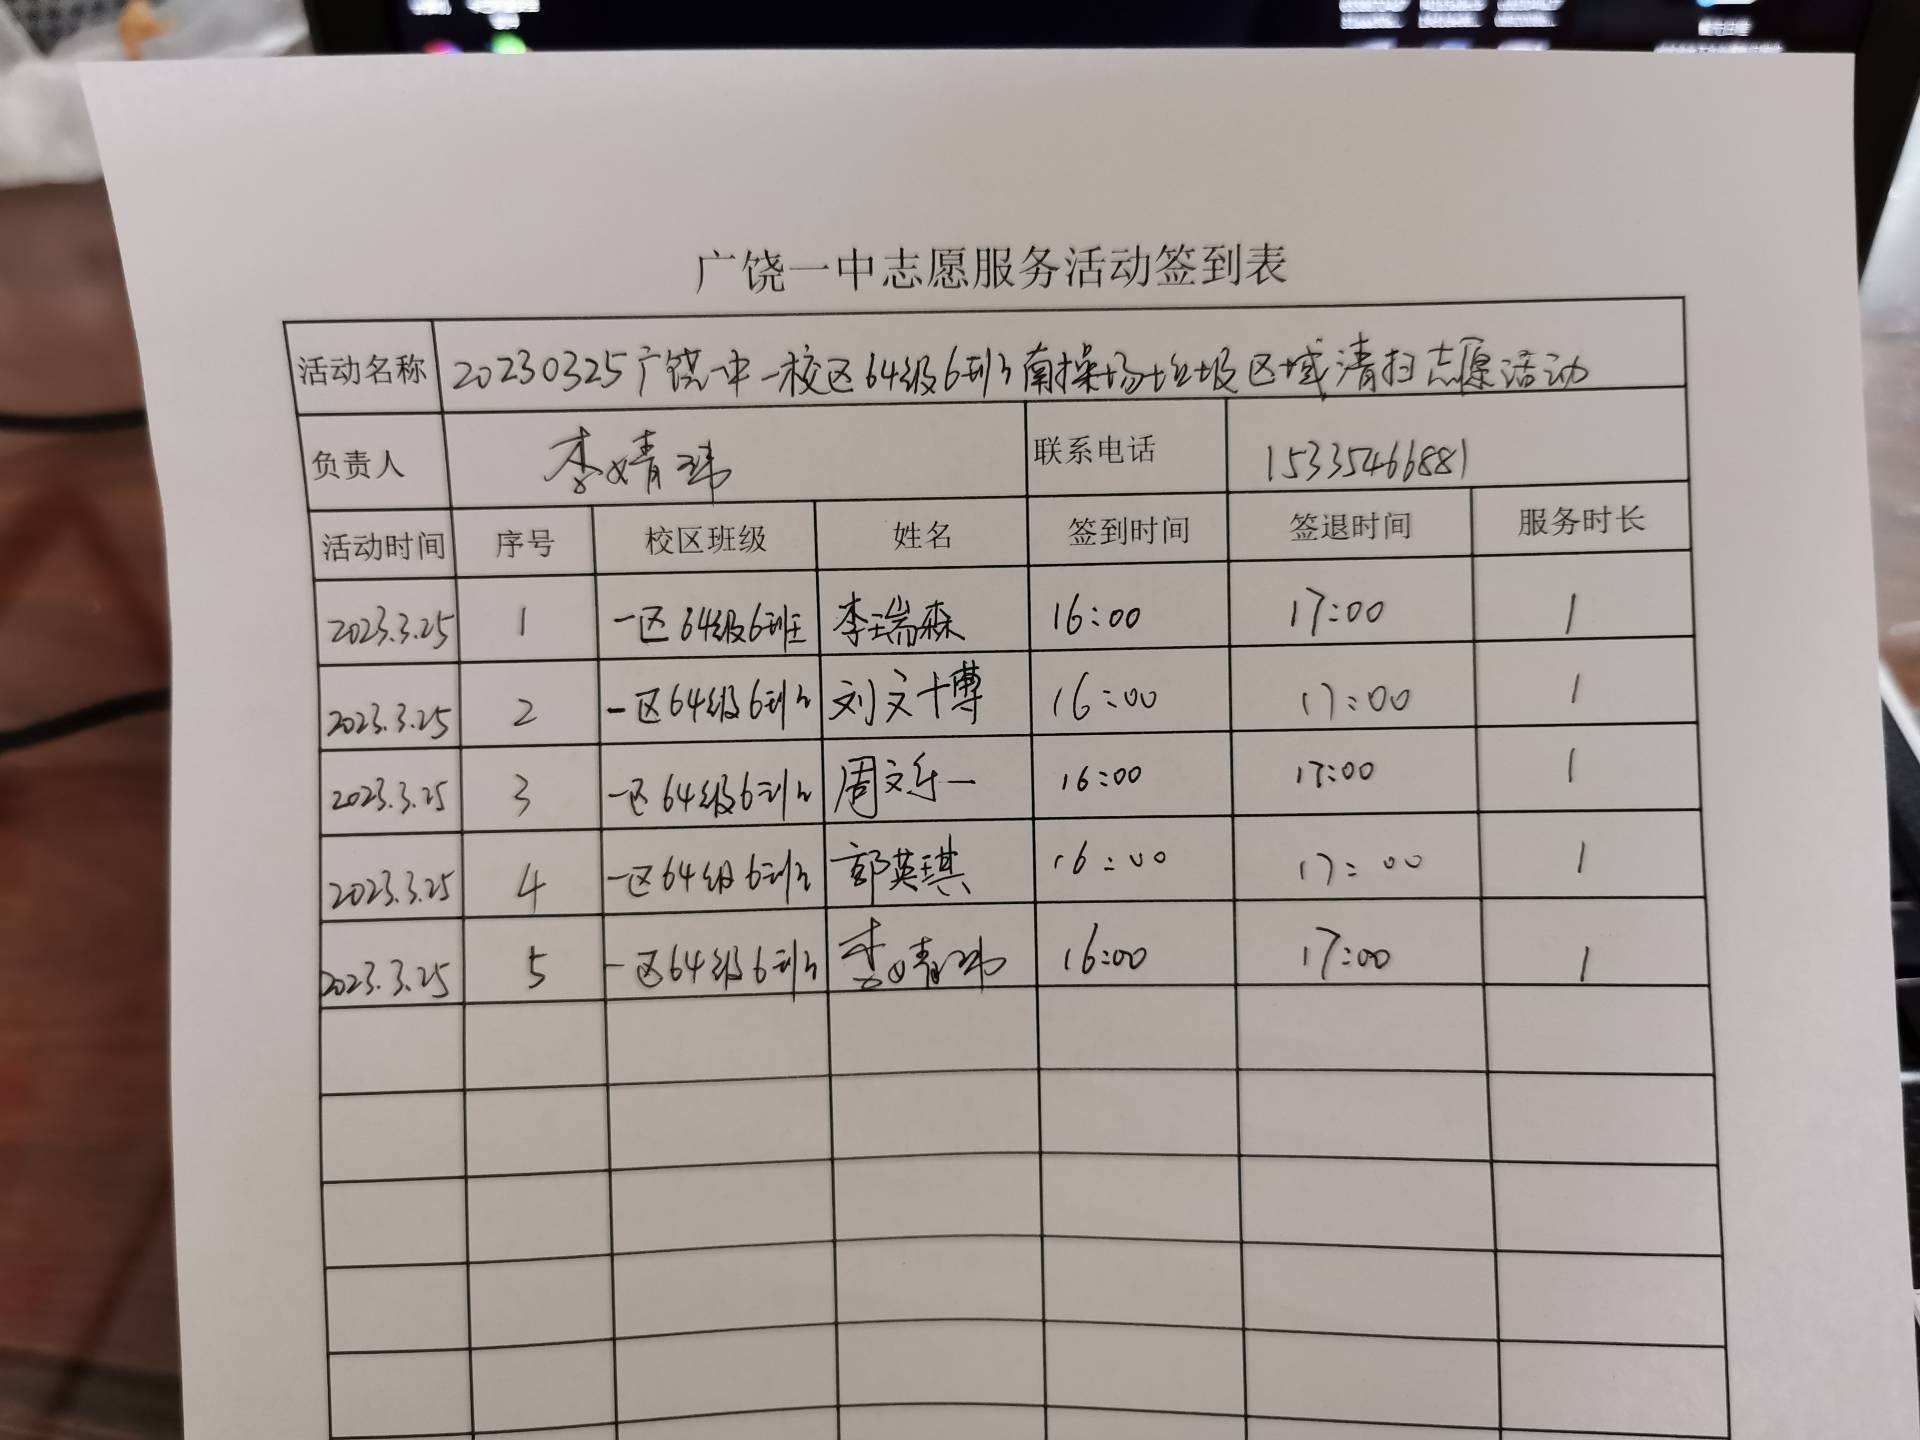 广饶一中志愿服务活动签到表
活动名称 20230325广饶一中一校区64级6班南操场垃圾区域清扫志愿活动
负责人 李婧玮 联系电话 15335466881
活动时间 序号 校区班级 姓名 签到时间 签退时间 服务时长
2023.3.25 1 一区64级6班 李瑞森 16:00 17:00 1
2023.3.25 2 一区64级6班 刘文博 16:00 17:00 1
2023.3.25 3 一区64级6班 周文乐一 16:00 17:00 1
2023.3.25 4 一区64级6班 郭英琪 16:00 17:00 1
2023.3.25 5 一区64级6班 李婧玮 16:00 17:00 1